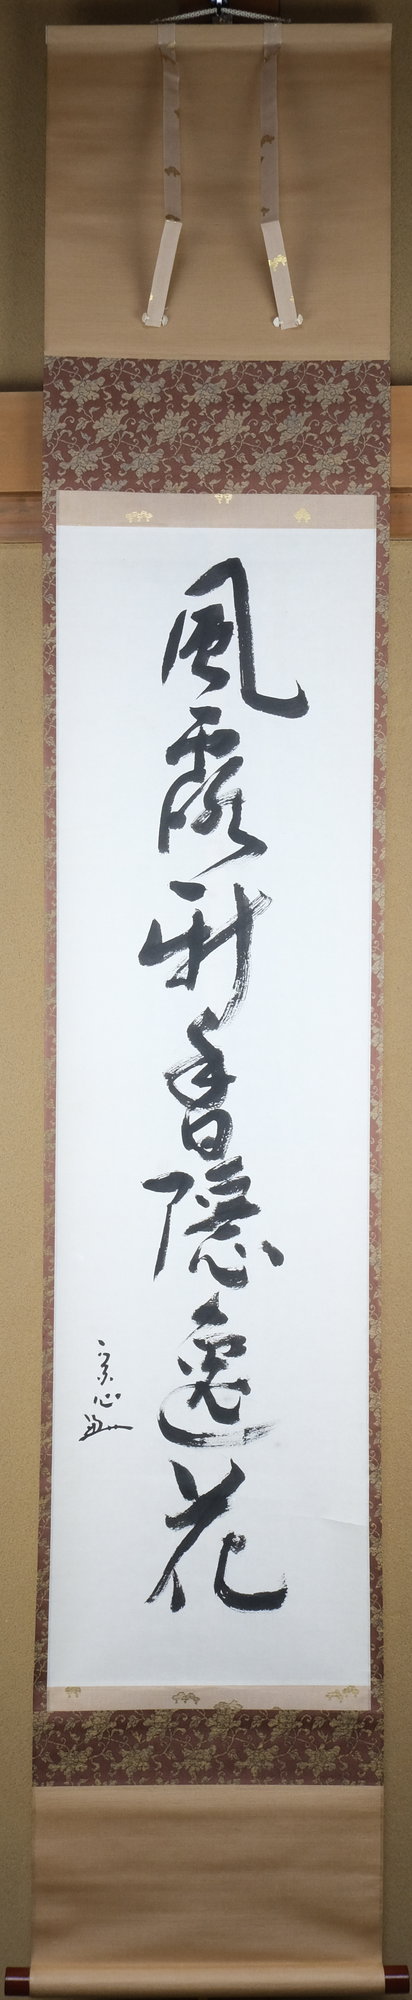 風露新香隠逸花
宗心